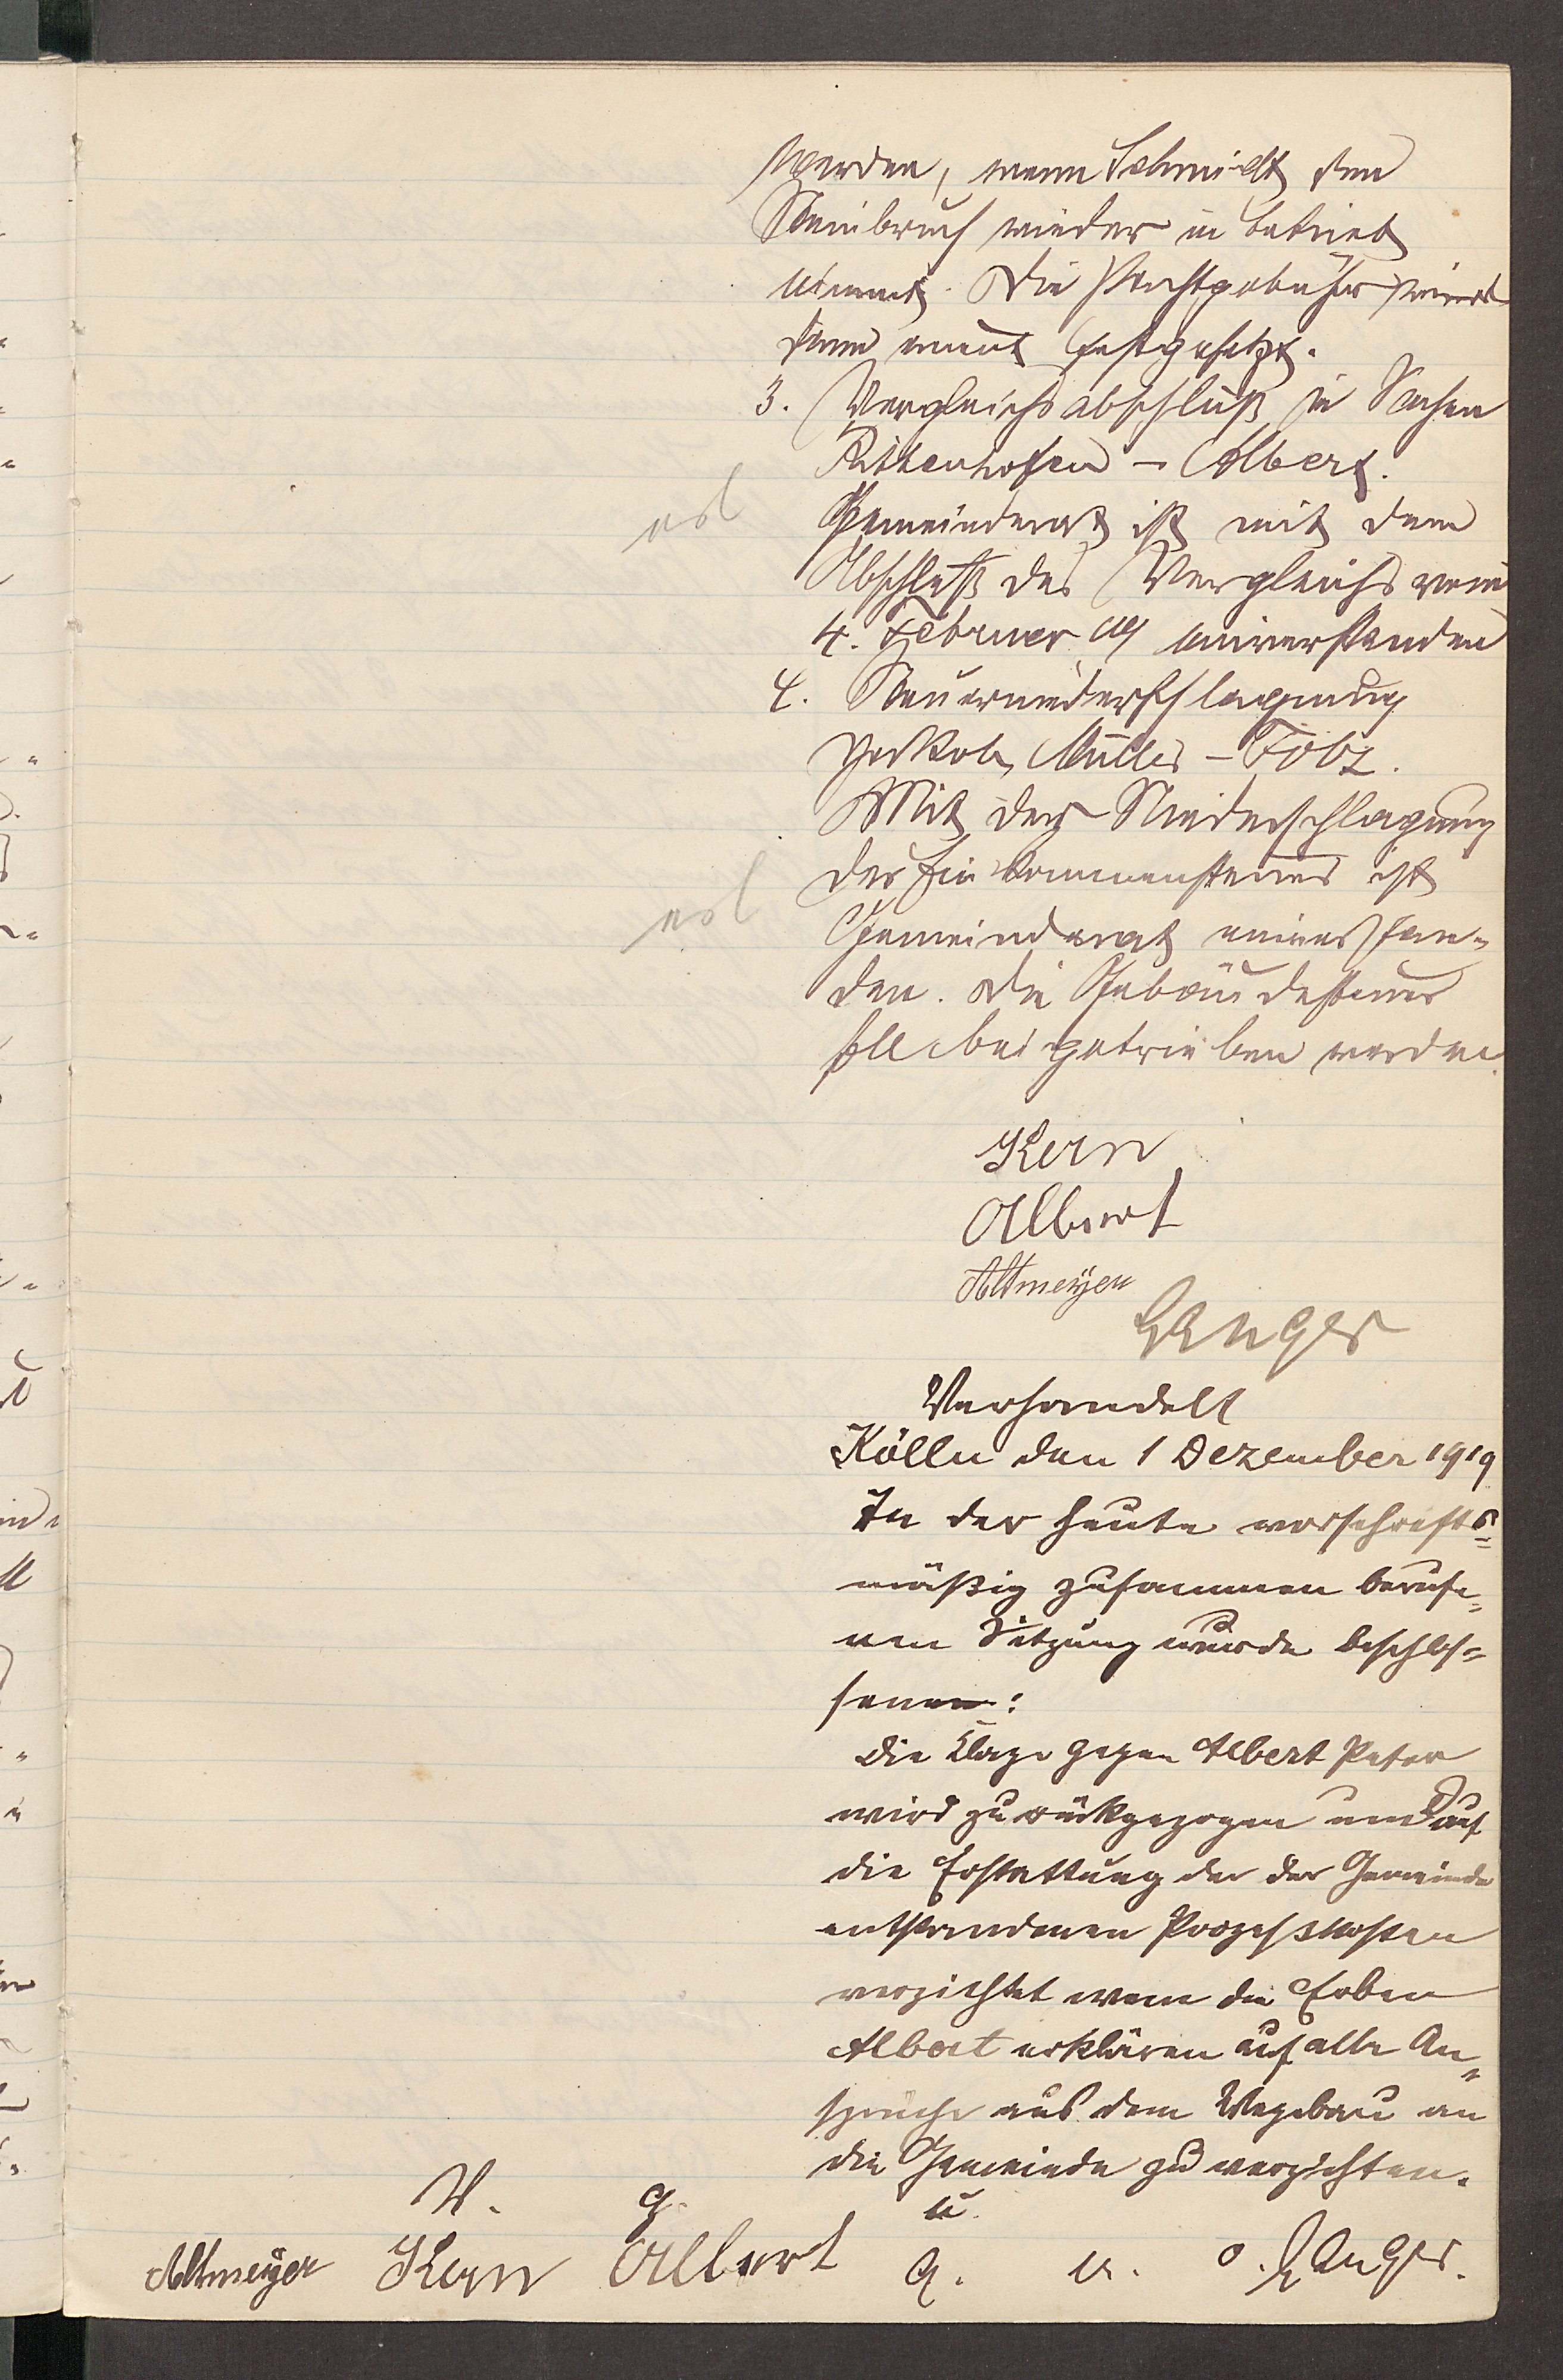 werden, wenn Schmidt den
Steinbruch wieder in Betrieb
nimmt. Die Pachtgebühr wird
dann erneut festgesetzt.
3. Vergleichsabschluß in Sachen
Rittenhofen - Albert.
erl
Gemeinderat ist mit dem
Abschluß des Vergleichs vom
4. Februar 19 einverstanden
4. Steuerniederschlagung
Jakob Müller - Folz.
Mit der Niederschlagung
der Einkommensteuer ist
erl
Gemeinderat einverstan-
den. Die Gebäudesteuer
soll beigetrieben werden.
Kern
Albert
Altmeyer
Langer
Verhandelt
Kölln den 1 Dezember 1919
In der heute vorschrifts=
mäßig zusammen berufe=
nen Sitzung wurde beschlos=
senen:
Die Klage gegen Albert Peter
wird zurückgezogen und auf
die Erstattung der der Gemeinde
entstandenen Prozesskosten
verzichtet wenn die Erben
Albert erklären auf alle An=
sprüche aus dem Wegebau an
die Gemeinde zu verzichten.
V. g. u.
Altmeyer Kern Albert g. u. o. Langer.